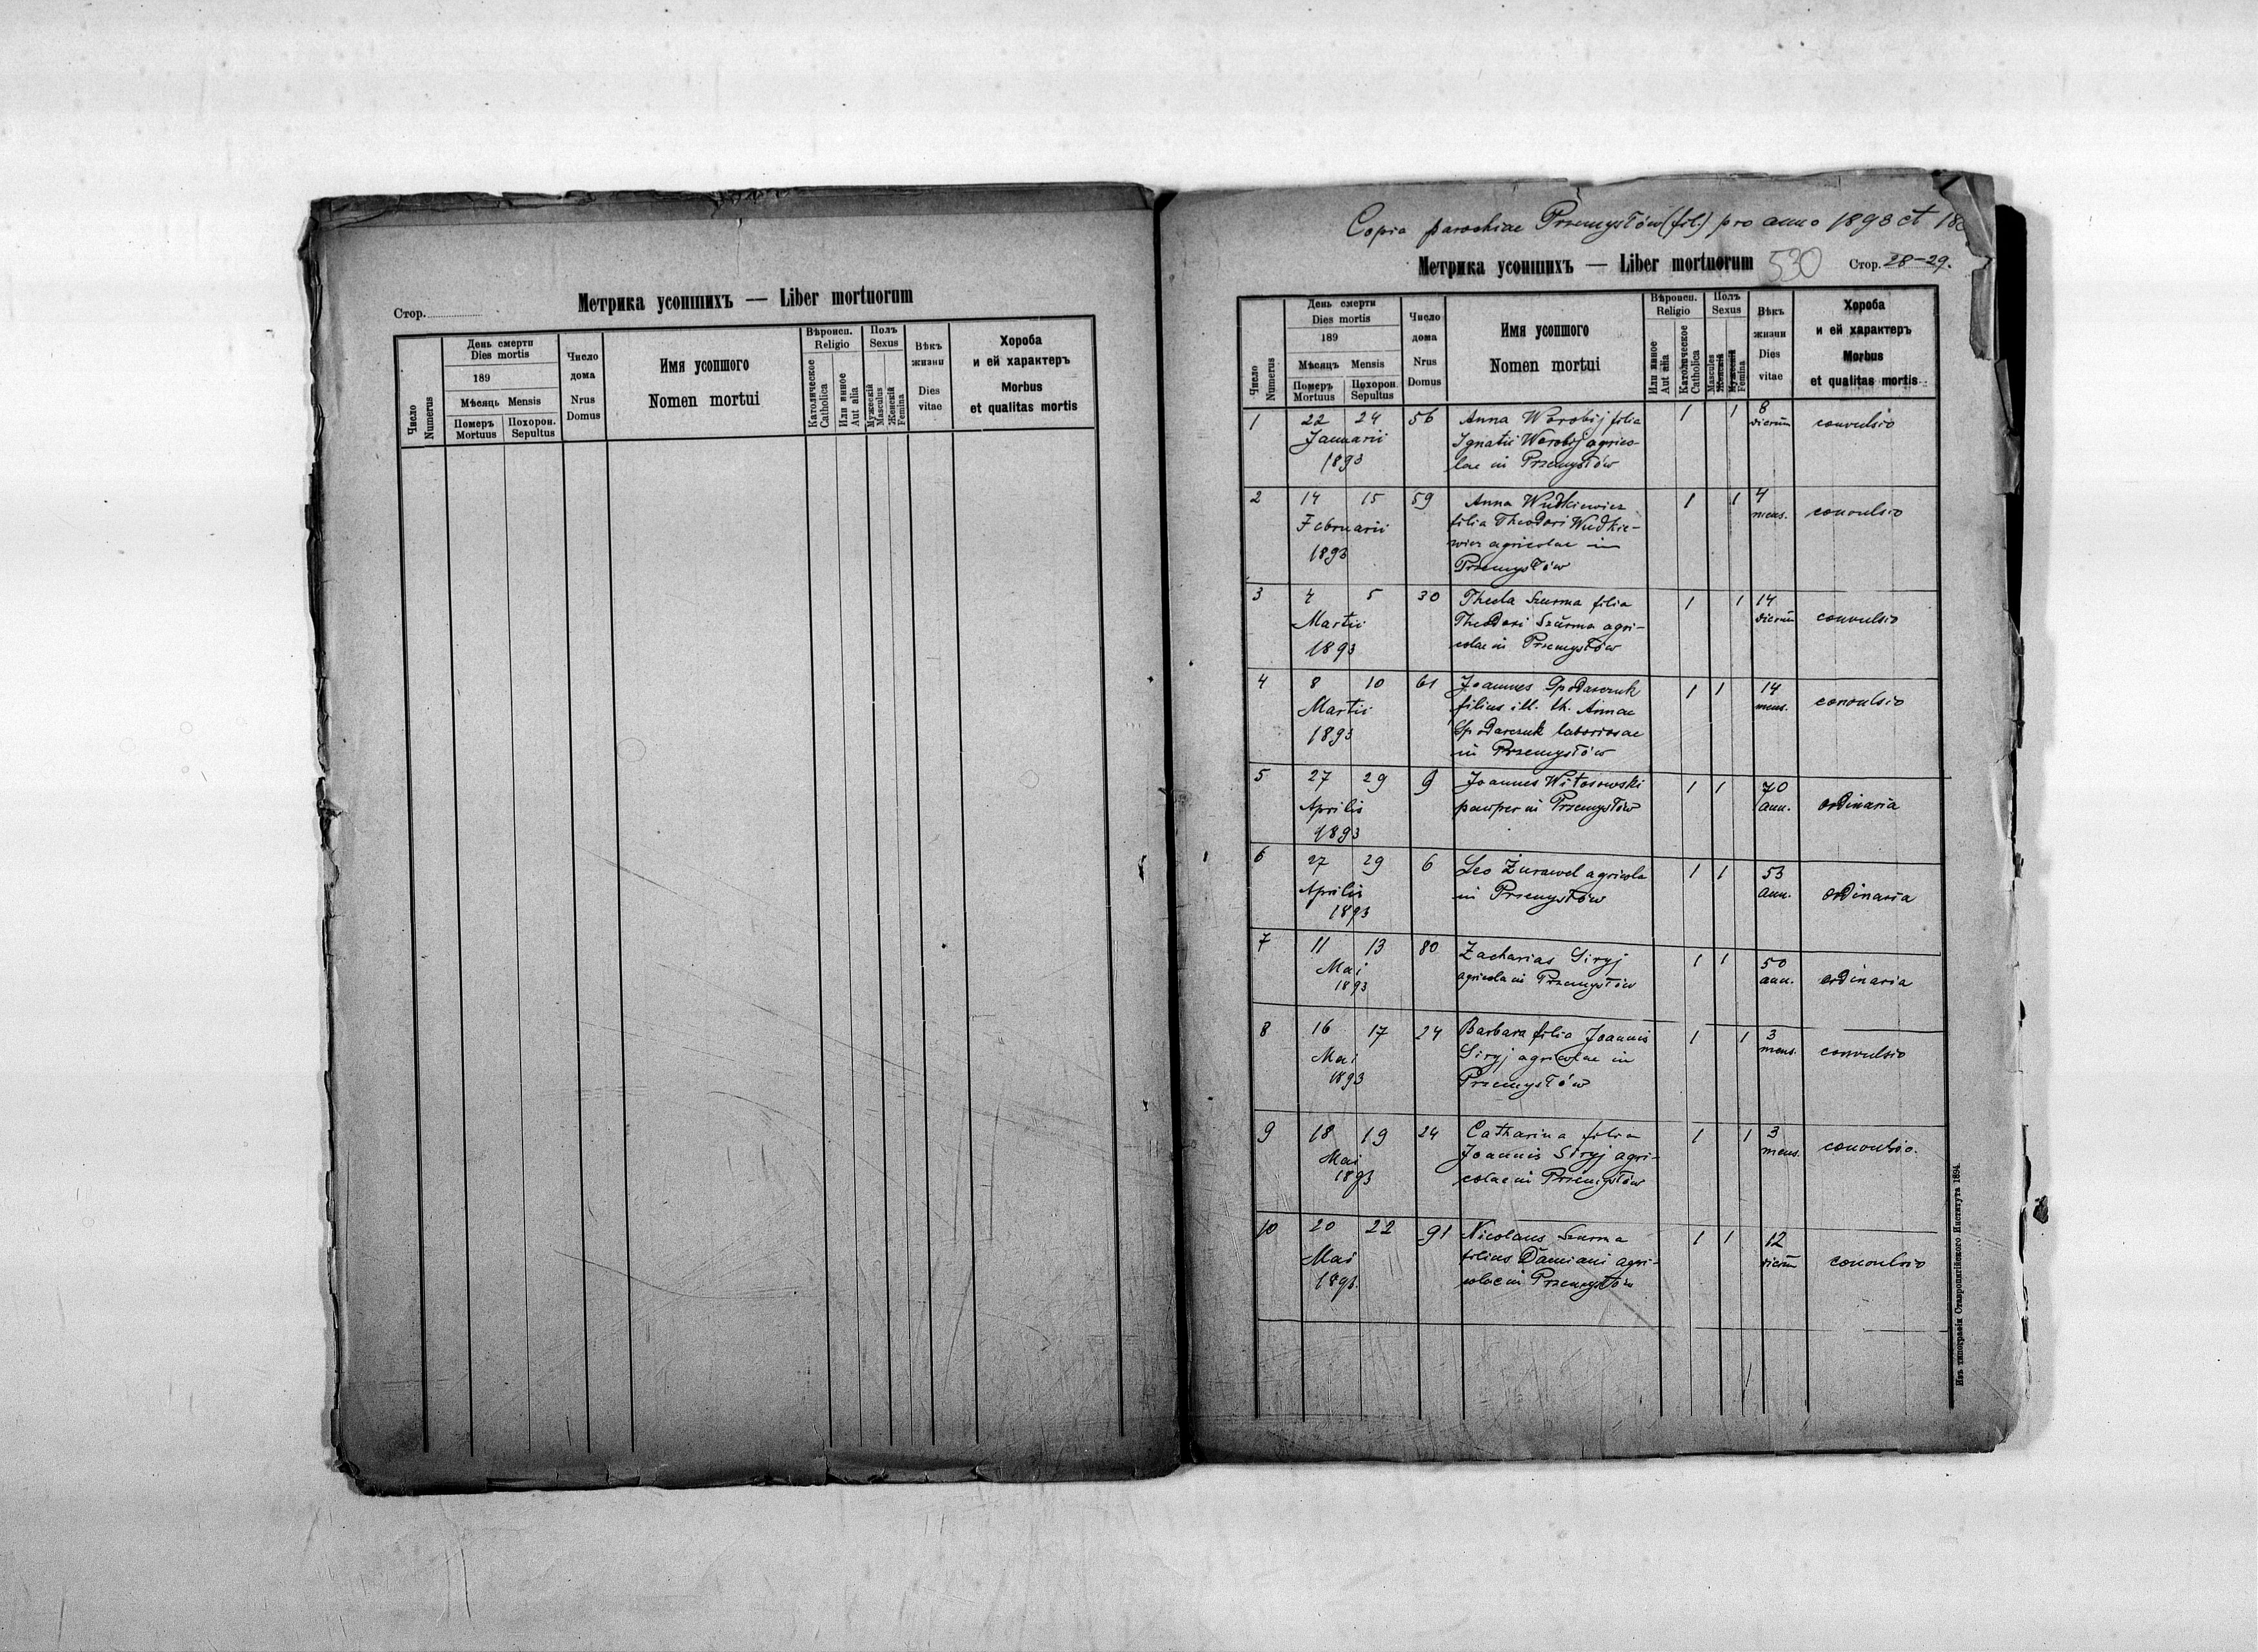 Стор.
Метрика усопшихъ — Liber mortuorum
Число Numerus
День смерти
Dies mortis
189
Мѣсяць Mensis
Померъ Mortuus
Похорон. Sepultus
Число дома
Nrus Domus
Имя усопшого
Nomen mortui
Вѣроисп.
Religio
Католическое Catholica
Или инное Aut alia
Полъ
Sexus
Мужескій Masculus
Женскій Femina
Вѣкъ жизни
Dies vitae
Хороба
и ей характеръ
Morbus
et qualitas mortis
Copia parochiae Przemysłów (fil.) pro anno 1893 et
Метрика усопшихъ — Liber mortuorum 530 Стор. 28-29.
Число Numerus
День смерти
Dies mortis
189
Мѣсяць Mensis
Померъ Mortuus
Похорон. Sepultus
Число дома
Nrus Domus
Имя усопшого
Nomen mortui
Вѣроисп.
Religio
Или инное Aut alia
Католическое Catholica
Полъ
Sexus
Masculus Женскій
Мужескій Femina
Вѣкъ жизни
Dies vitae
Хороба
и ей характеръ
Morbus
et qualitas mortis
1 22 24 56 Anna Worobij filia 1 1 8 convulsio
Januarii Ignatii Worobij agrico- dierum
1893 lae in Przemysłów
2 14 15 59 Anna Wudkiewicz 1 1 4 convulsio
Februarii filia Theodori Wudkie- mens.
1893 wicz agricolae in
Przemysłów
3 4 5 30 Thecla Szurma filia 1 1 14 convulsio
Martii Theodori Szurma agri- dierum
1893 colae in Przemysłów
4 8 10 61 Joannes Spodarczuk 1 1 14 convulsio
Martii filius ill. th. Annae mens.
1893 Spodarczuk laboriosae
in Przemysłów
5 27 29 9 Joannes Witosowski 1 1 70 ordinaria
Aprilis pauper in Przemysłów ann.
1893
6 27 29 6 Leo Żurawel agricola 1 1 53 ordinaria
Aprilis in Przemysłów ann.
1893
7 11 13 80 Zacharias Siryj 1 1 50 ordinaria
Mai agricola in Przemysłów ann.
1893
8 16 17 24 Barbara filia Joannis 1 1 3 convulsio
Mai Siryj agricolae in mens.
1893 Przemysłów
9 18 19 24 Catharina filia 1 1 3 convulsio.
Mai Joannis Siryj agri- mens.
1893 colae in Przemysłów
10 20 22 91 Nicolaus Szurma 1 1 12 convulsio
Mai filius Damiani agri- dierum
1893. colae in Przemysłów
Изъ типографіи Ставропигійского Института 1894.